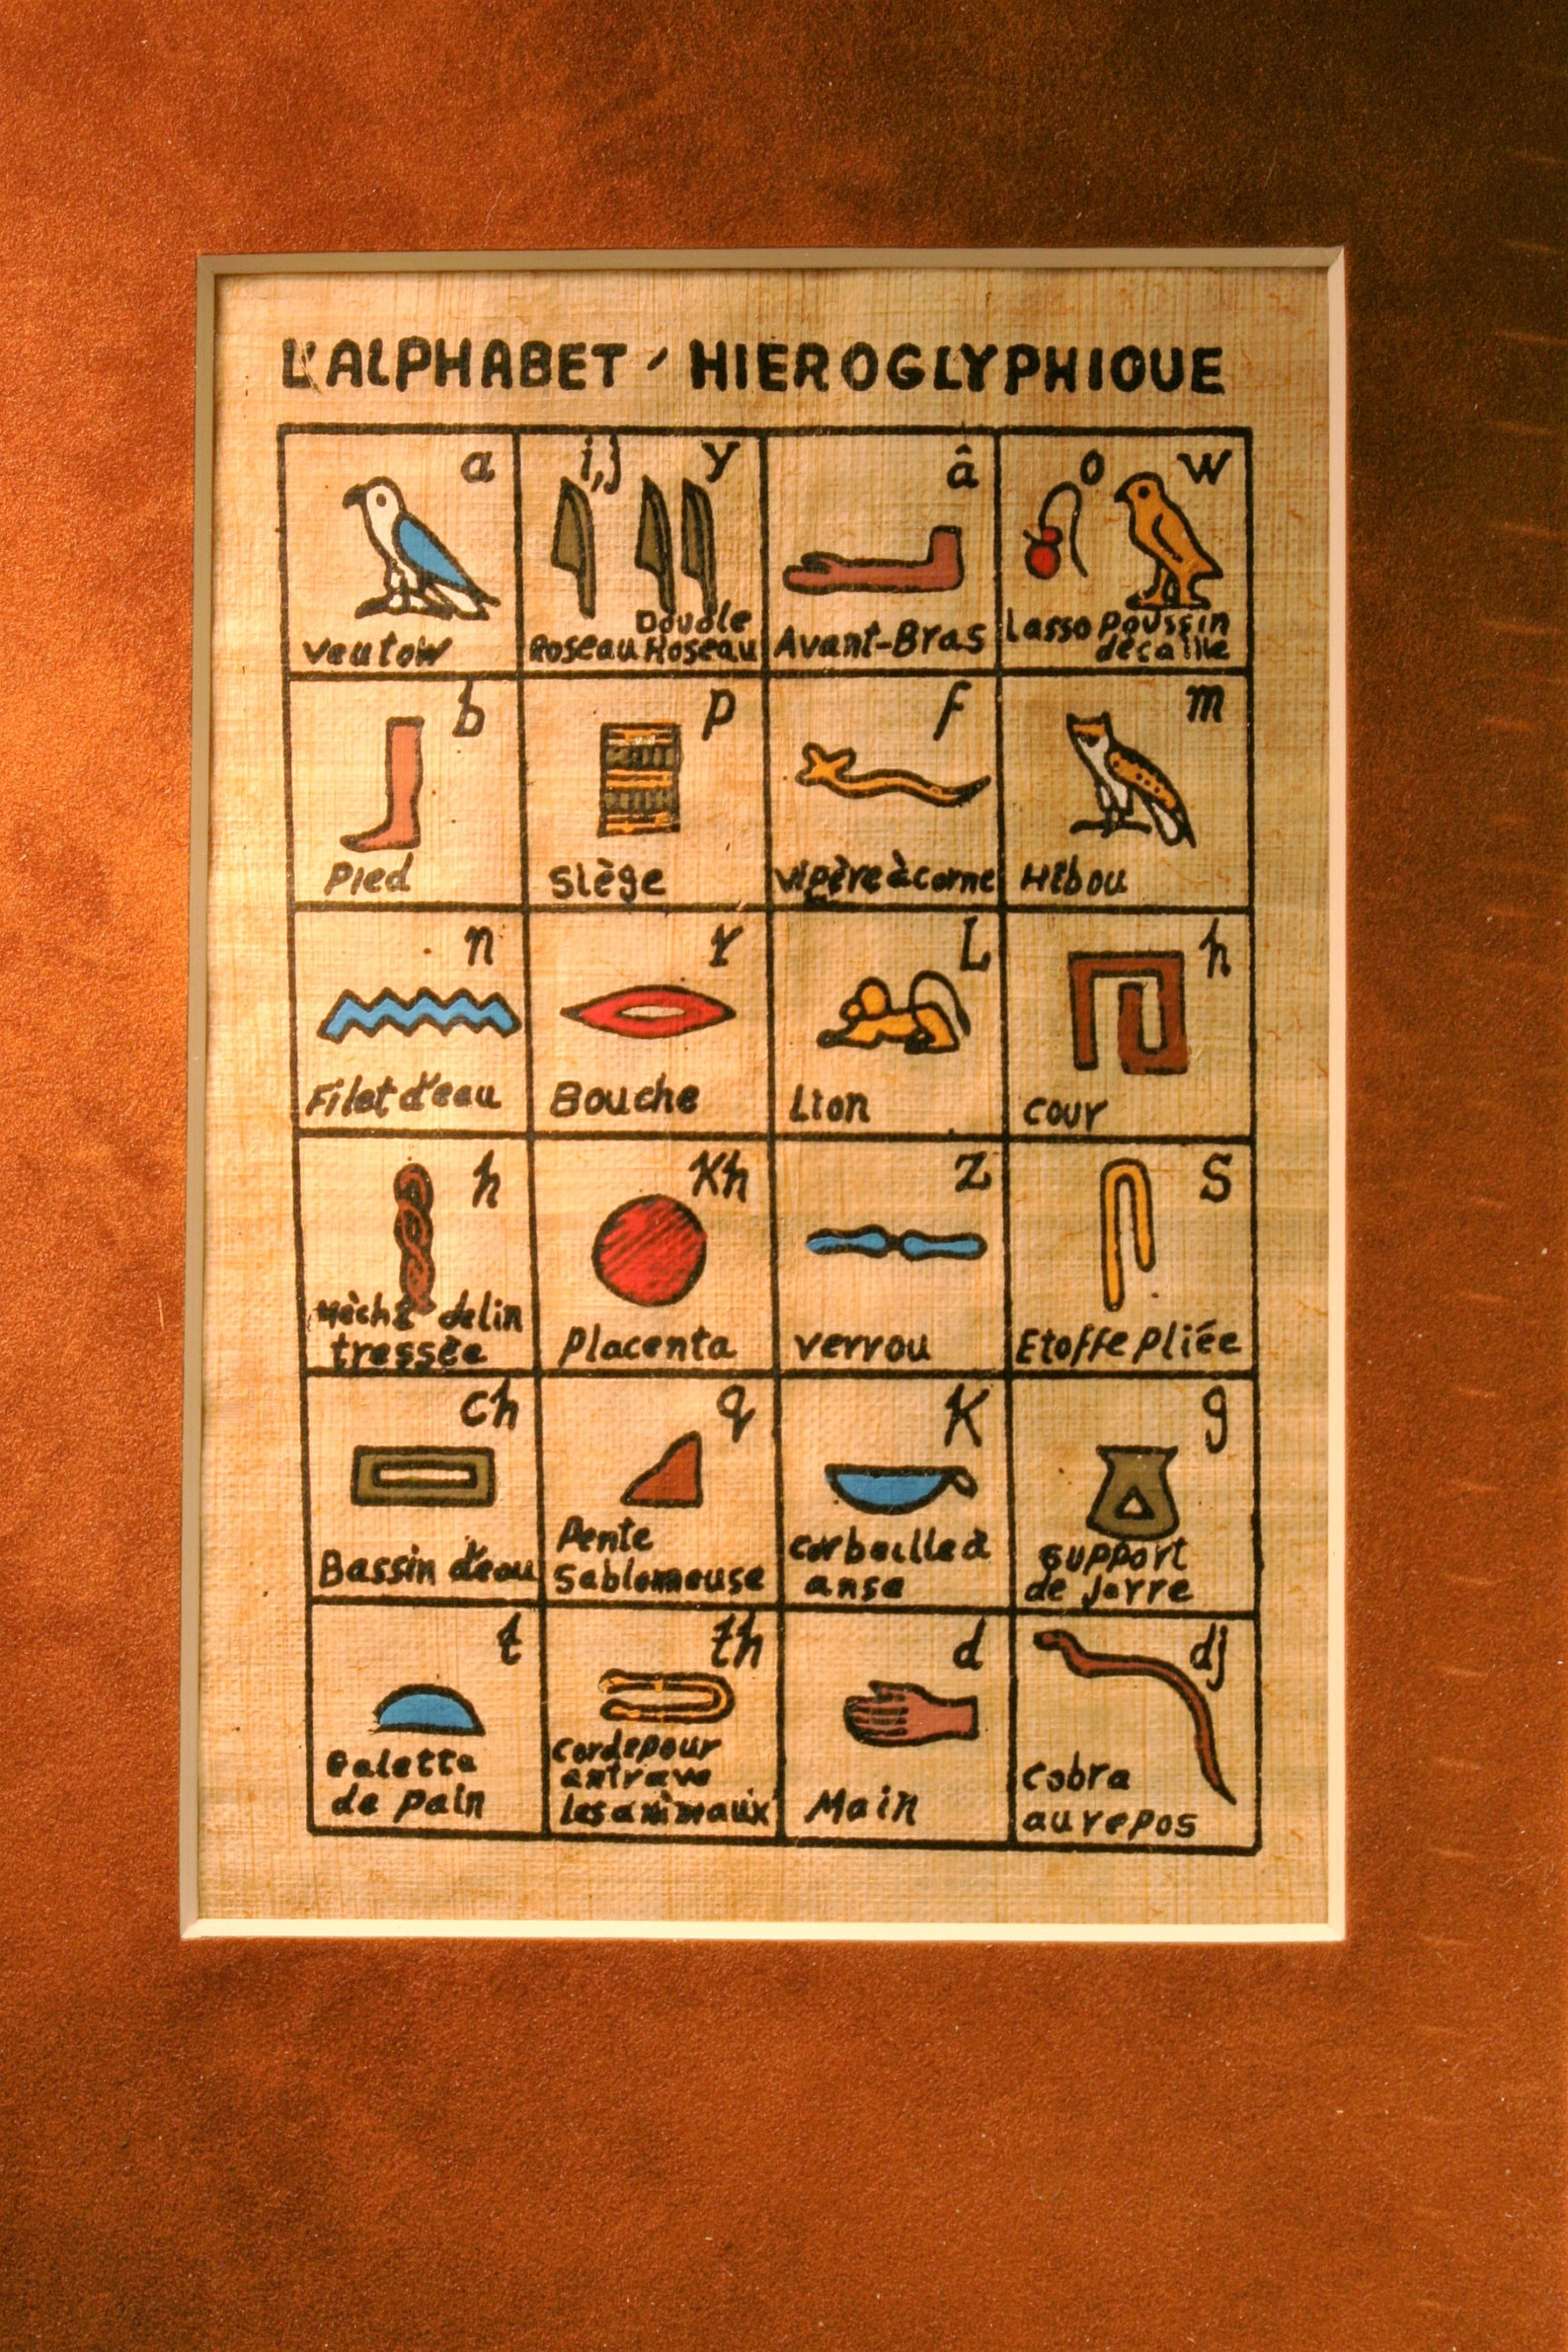 L'ALPHABET ' HIEROGLYPHIQUE
a
Vautow
i,j y
Double
Roseau Roseau
â
Avant-Bras
o w
Lasso Poussin
decaille
b
Pied
p
Siège
f
Vipère à corne
m
Hibou
n
Filet d'eau
r
Bouche
L
Lion
h
cour
h
Mèche de lin
tressèe
Kh
Placenta
Z
verrou
S
Etoffe Pliée
ch
Bassin d'eau
q
Pente
Sablomeuse
K
corbeille à
anse
g
support
de jarre
t
Galette
de pain
th
Corde pour
entrave
les animaux
d
Main
dj
Cobra
au repos